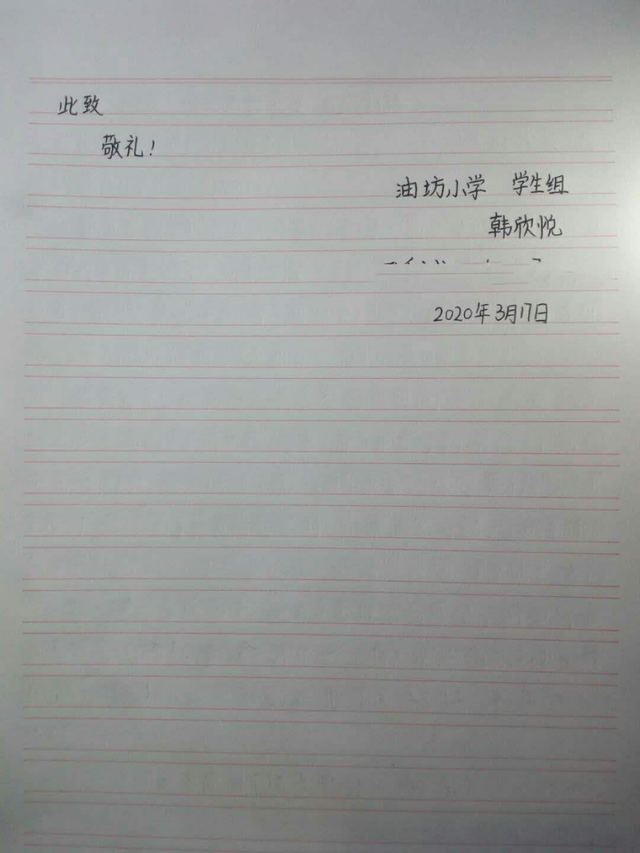 此致
敬礼！
油坊小学 学生组
韩欣悦
2020年3月17日